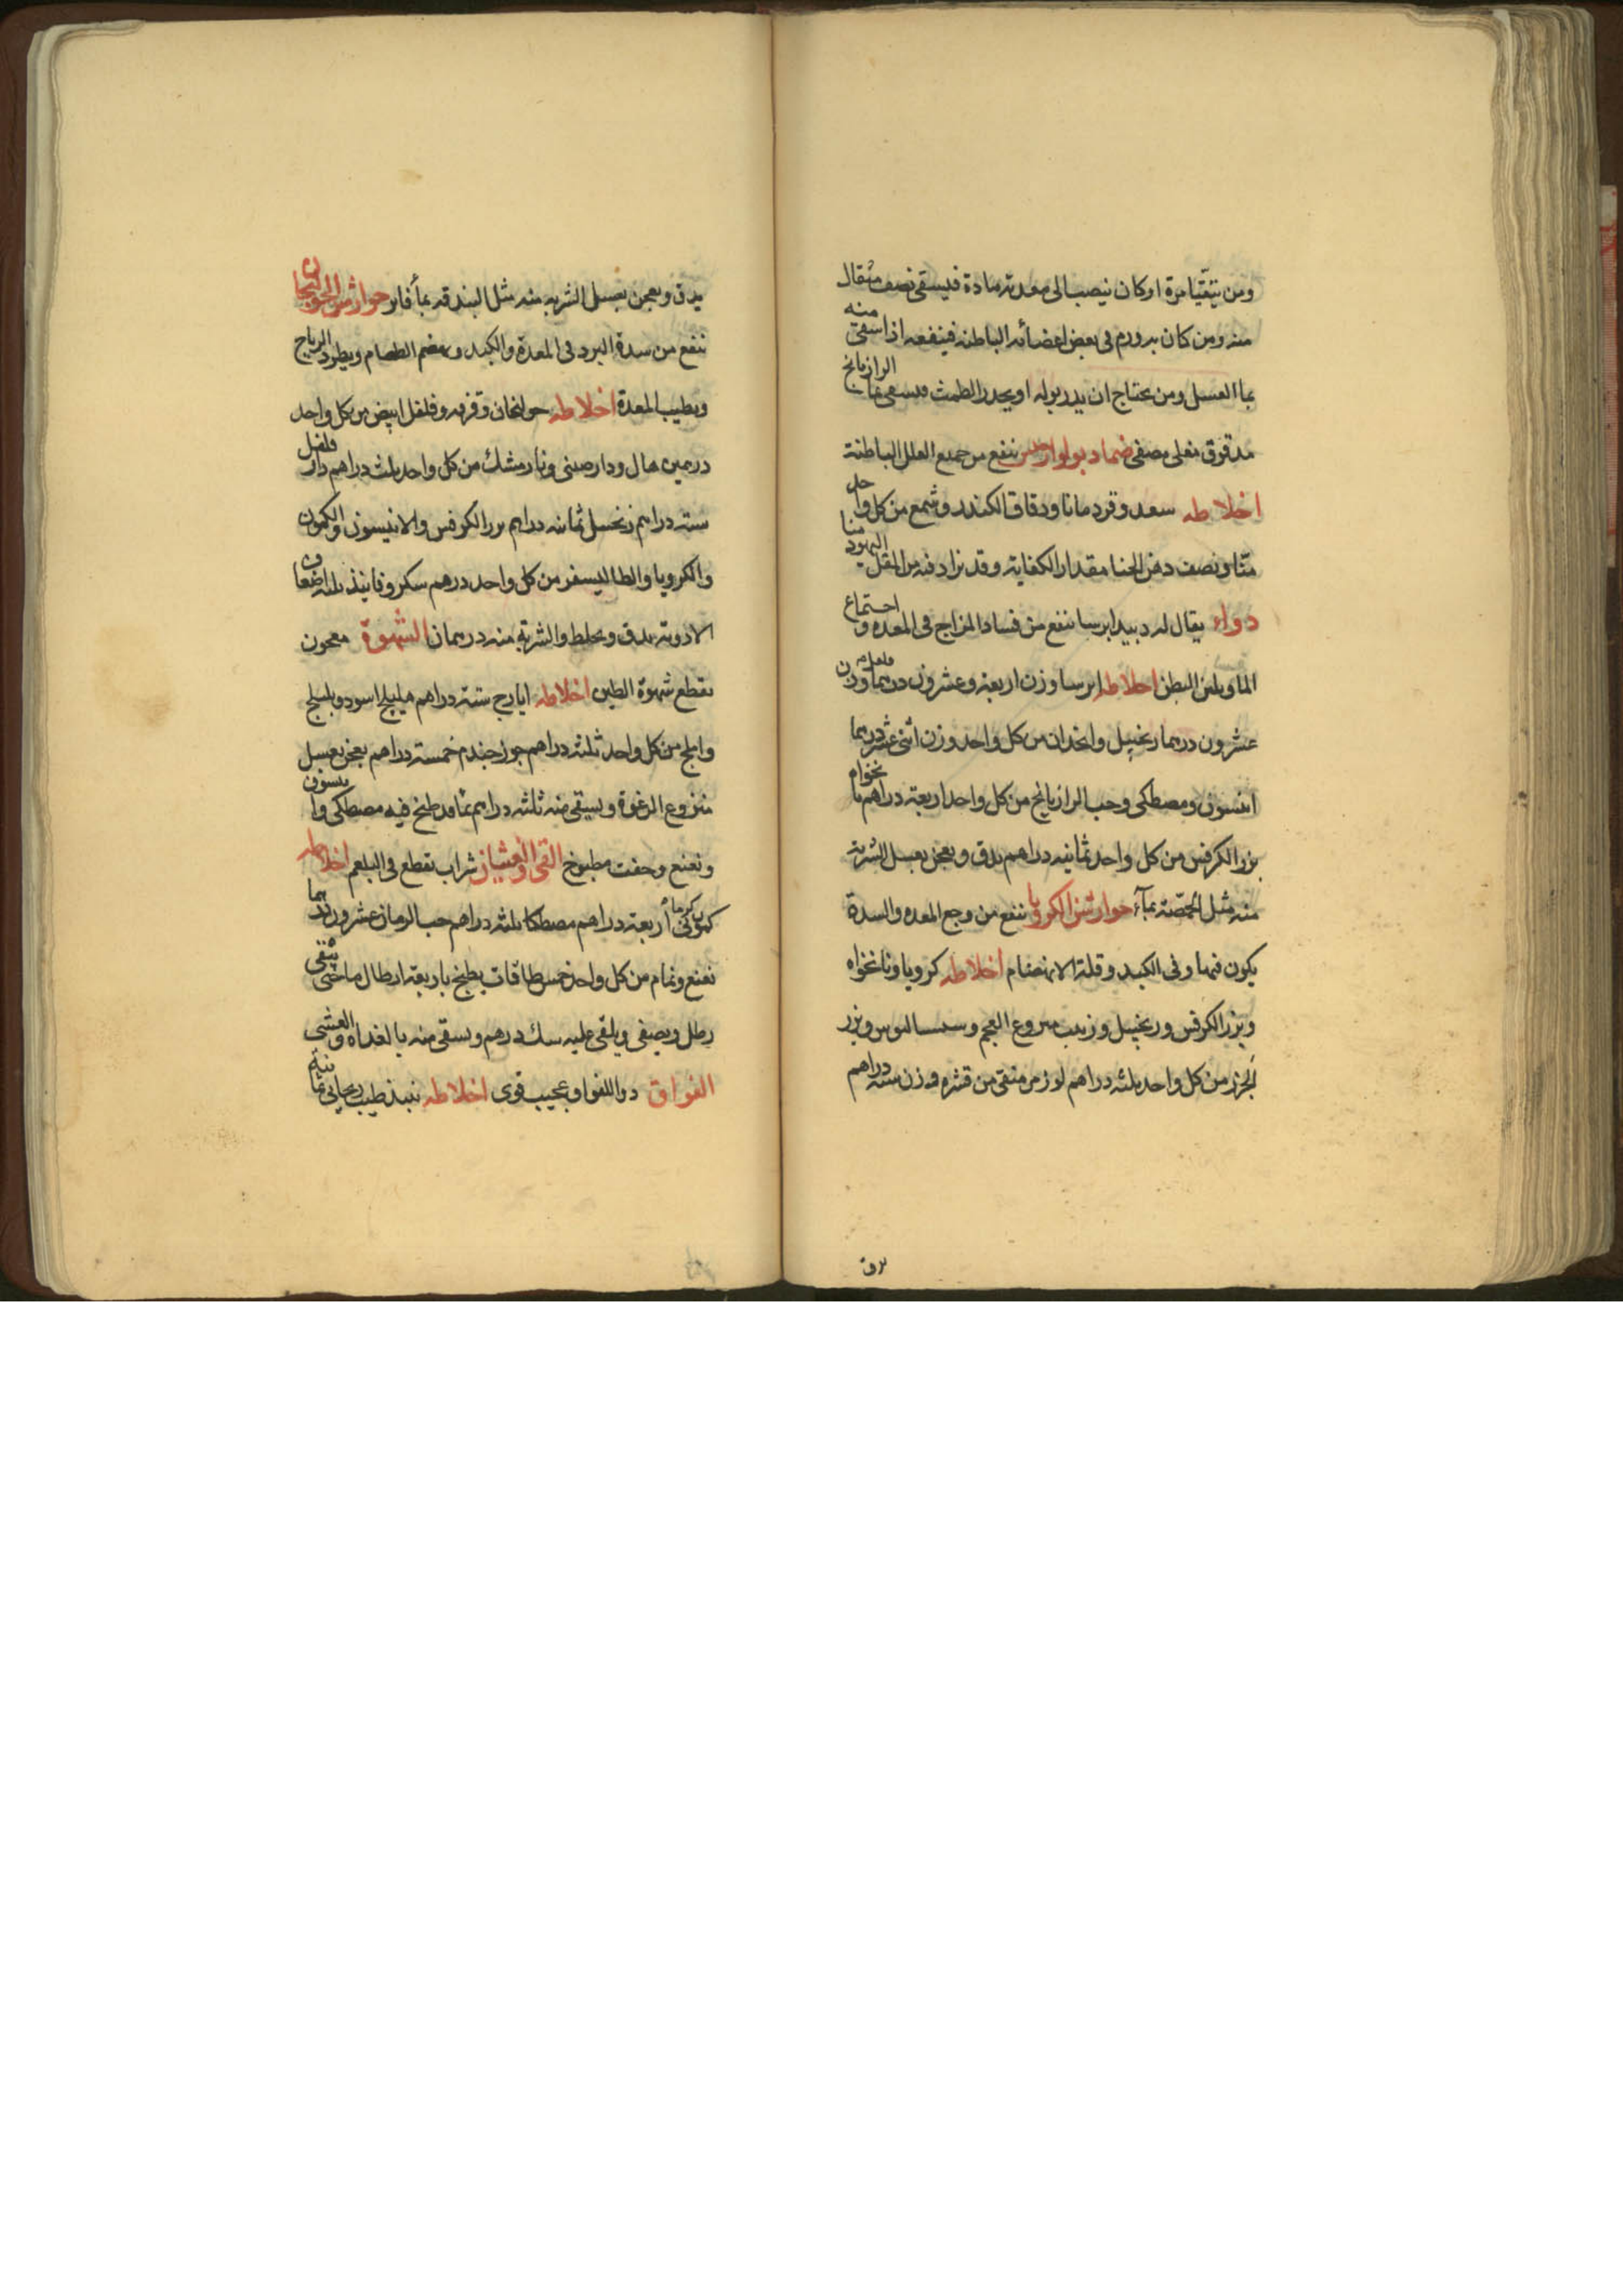 ومن يتقيا مرة او كان ينصب الى معدته مادة فليسقى نصف مثقال
منه ومن كان به ورم في بعض اعضائه الباطنه فينفعه اذا سقى منه
بماالعسل ومن يحتاج ان يدر بوله او يحدر الطمث فيسقى بماء الرازيانج
مدقوق مغلى مصفى ضماد ينفع من جميع العلل الباطنة
اخلاطه سعد وقردمانا ودقاق الكندر وشمع من كل واحد
منا ونصف دهن الحنا مقدار الكفاية وقد يزاد فيه من المقل اليهود منا
دواء يقال له دبيد ايرسا ينفع من فساد المزاج في المعده واجتماع
الما ويلين البطن اخلاطه ايرسا وزن اربعة وعشرون درهما وزن
عشرون درهما زنجبيل وانجدان من كل واحد وزن اثنى عشر درهما
انيسون ومصطكى وحب الرازيانج من كل واحد اربعة دراهم نانخواه
بزر الكرفس من كل واحد ثمانيه دراهم يدق ويعجن بعسل الشربة
منه مثل الحمصة بمآء جوارشن الكرويا ينفع من وجع المعده والسدة
يكون فيها وفي الكبد وقلة الانهضام اخلاطه كرويا ونانخواه
وبزر الكرفس وزنجبيل وزبيب منزوع العجم وبزر
الجزر من كل واحد ثلثه دراهم لوز مر منقى من قشره وزن سته دراهم
يدق
يدق ويعجن بعسل الشربه منه مثل البندقه بمآ فاتر جوارشن الخولنجان
ينفع من سدة البرد في المعدة والكبد ويهضم الطعام ويطرد الرياح
ويطيب المعدة اخلاطه خولنجان وقرفه وفلفل ابيض من كل واحد
درهمين هال ودارصيني ونارمشك من كل واحد ثلث دراهم دار فلفل
سته دراهم زنجبيل ثمانيه دراهم بزر الكرفس والانيسون والكمون
والكرويا والطاليسفر من كل واحد درهم سكر وفانيذ ثلثه اضعاف
الادوية يدق ويخلط والشربة منه درهمان الشهوة معجون
يقطع شهوة الطين اخلاطه ايارج ستة دراهم هليلج اسود وبليلج
واملج من كل واحد ثلثه دراهم جوز جندم خمسة دراهم يعجن بعسل
منزوع الرغوة ويسقى منه ثلثه دراهم بما قد طبخ فيه مصطكى وانيسون
ونعنع مطبوخ القى والغشيان شراب يقطع في البلغم اخلاطه
كمون كرمانى اربعة دراهم مصطكا ثلثه دراهم حب الرمان عشرون درهما
نعنع ونمام من كل واحد خمس طاقات يطبخ باربعة ارطال ما حتى يبقى
رطل ويصفى ويلقى عليه سك درهم ويسقى منه بالغداه والعشى
الفواق دوا للفواق عجيب قوى اخلاطه نبيذ طيب ريحاني ثمانية